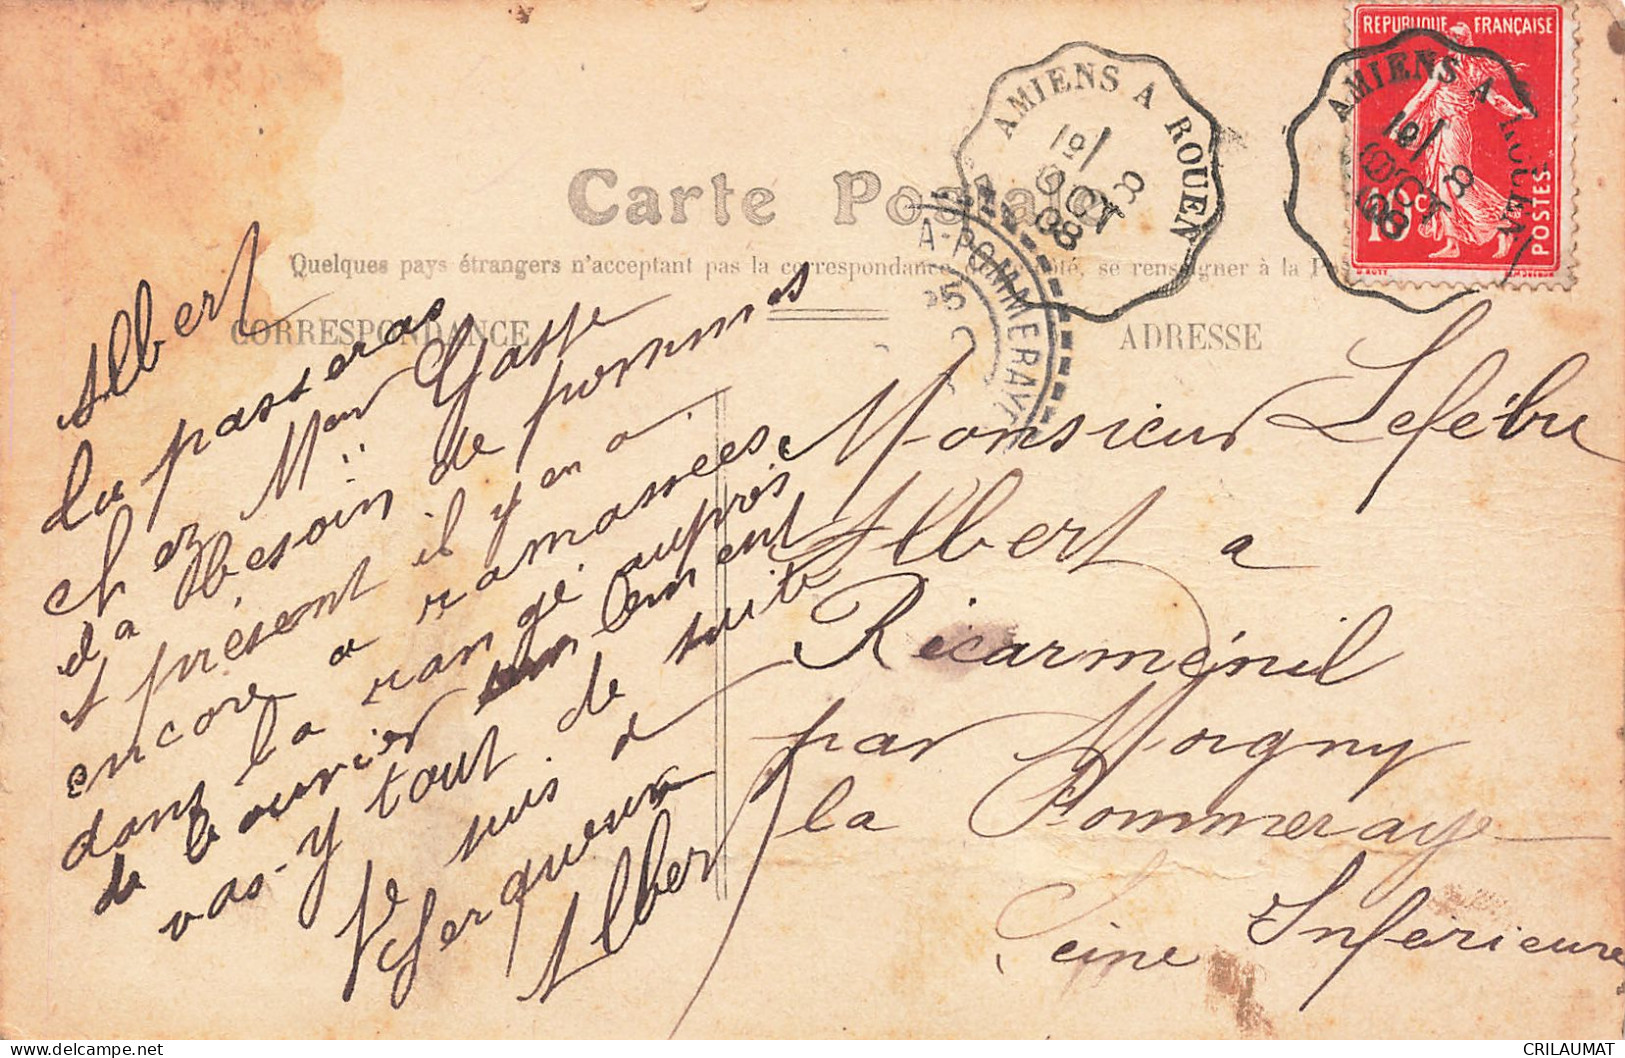 REPUBLIQUE FRANÇAISE
10 c.
POSTES
AMIENS A ROUEN
OCT
08
AMIENS A ROUEN
OCT
08
Carte Postale
A-POMMERAYE
25
Quelques pays étrangers n'acceptant pas la correspondance de ce côté, se renseigner à la Poste
CORRESPONDANCE
ADRESSE
Albert
du passeras
chez Mour Gasse
il a besoin de pommes
et présent il y en a
encore a ramassées
dans la rangé auprès
de l ouvrier
vas-y tout de suite
Je suis a
Serqueux
Albert
Monsieur Lefébre
Albert a
Ricarménil
par Morgny
la Pommeraye
Seine Inférieure
CRILAUMAT